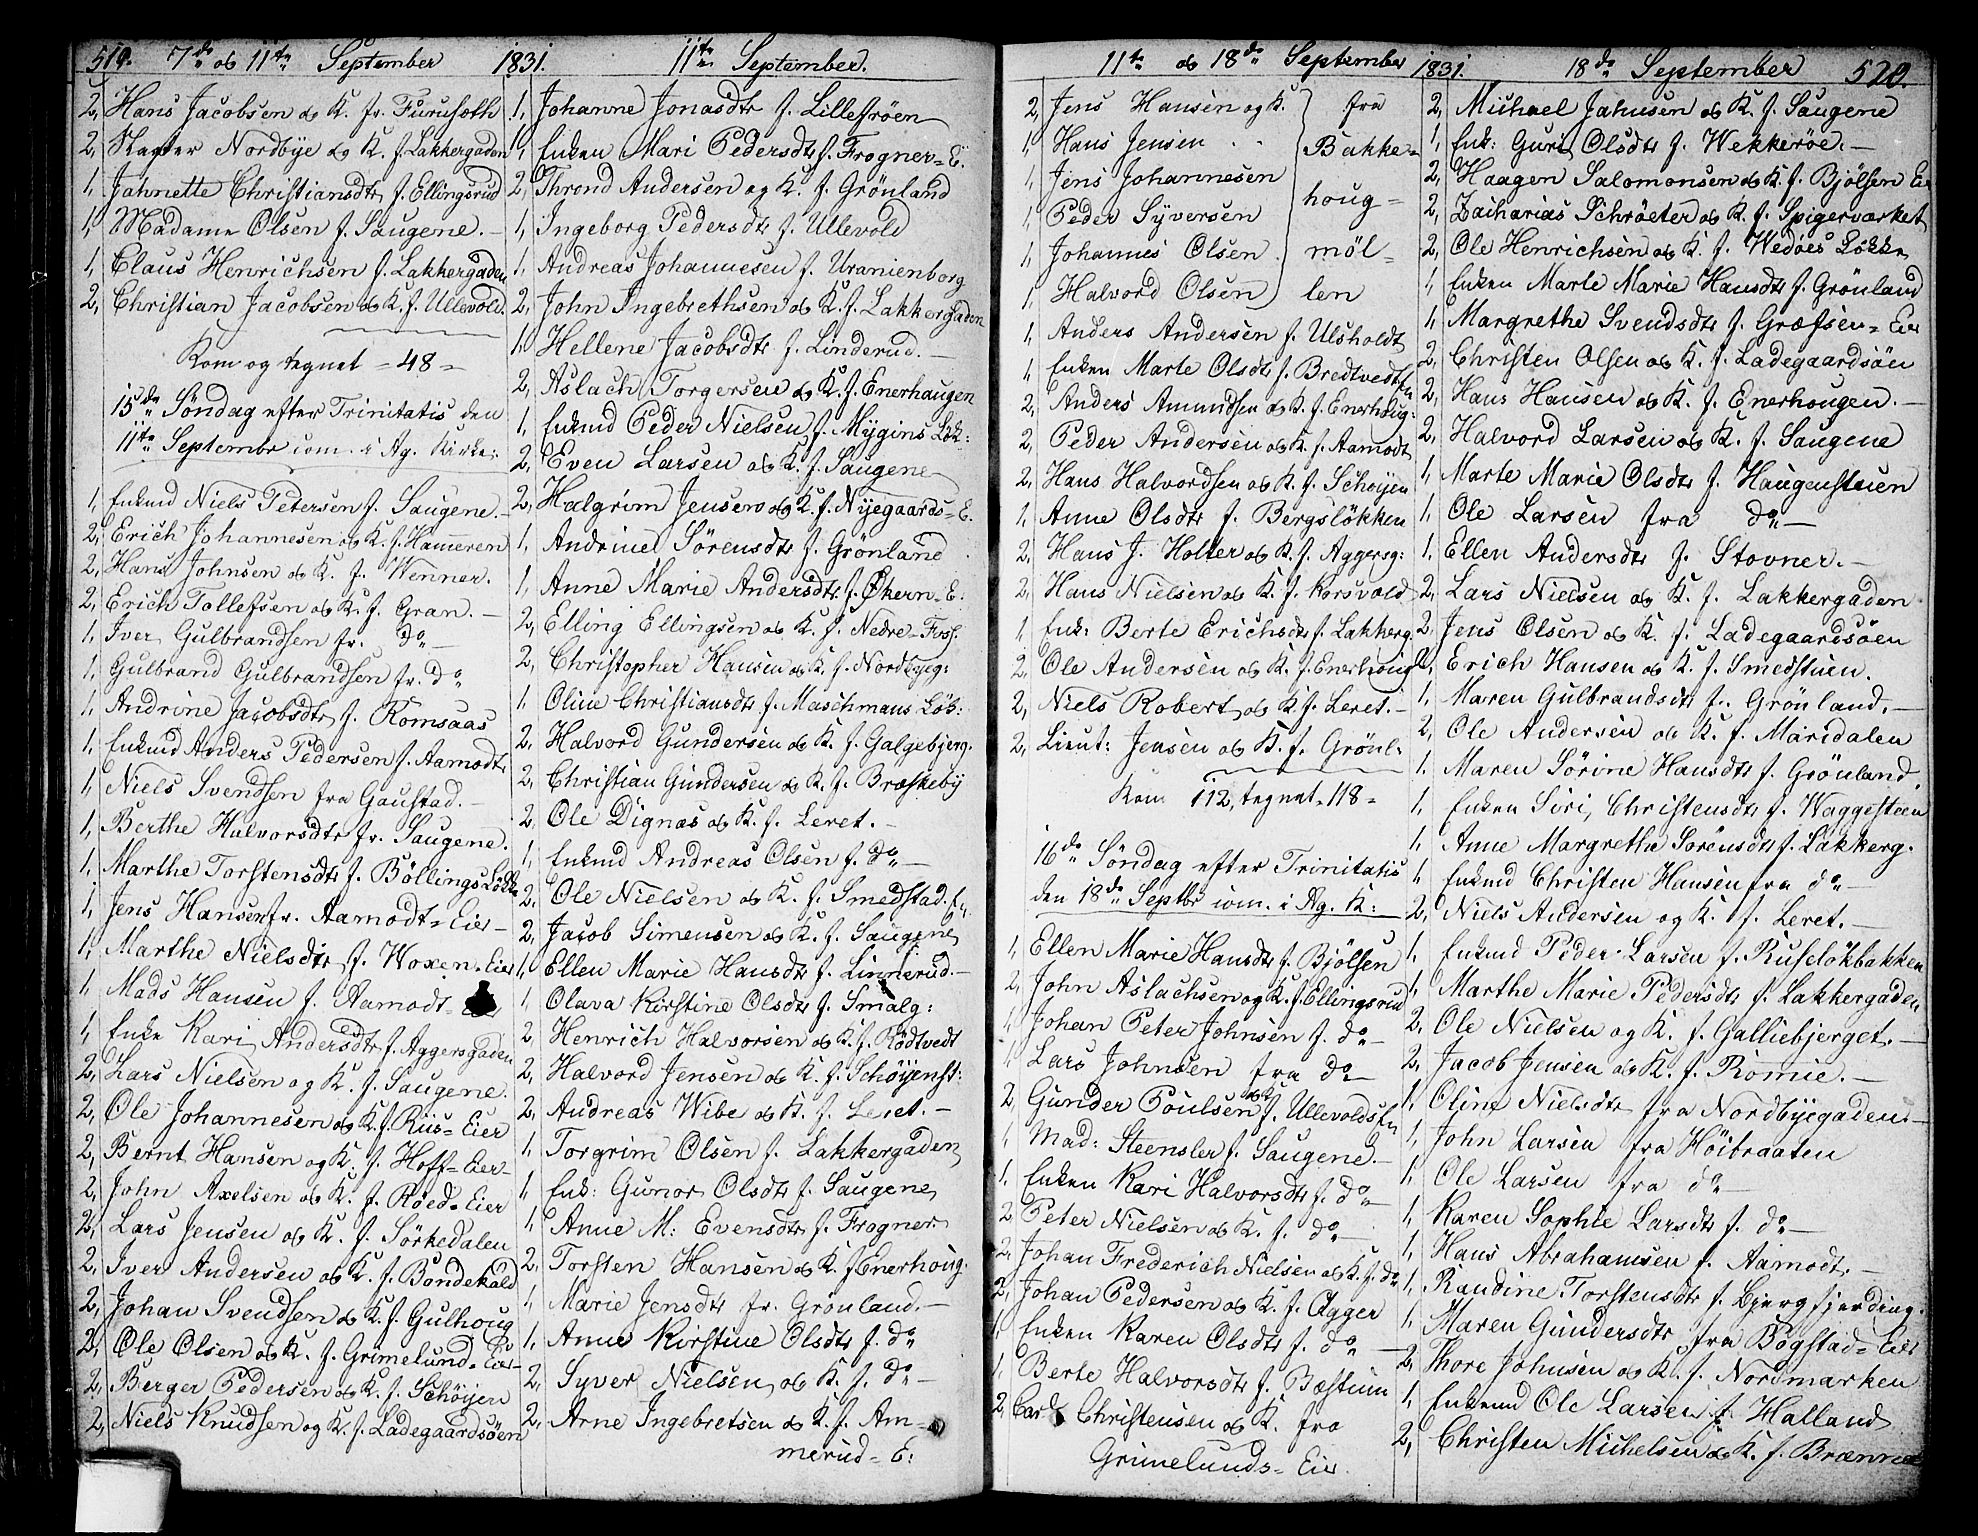 519. 7de og 11te September 1831. 11te September.
2, Hans Jacobsen og K. fr. Furusoth
2, Nordbye og K. f. Lakkergaden
1, Jahnette Christiansdtr f. Ellingsrud
1, Madame Olsen f. Saugene.
1, Claus Henrichsen f. Lakkergaden
2, Christian Jacobsen og K. f. Ullevold.
Kom og tegnet = 48 =
15de Søndag efter Trinitatis den
11te Septembr com. i Ag. Kirke:
1, Enkmd Niels Petersen f. Saugene.
2, Erich Johannesen og K. f. Hammeren
2, Hans Johnsen og K. f. Wenner.
2, Erich Tollefsen og K. f. Gran.
1, Iver Gulbrandsen fr. do
1, Gulbrand Gulbrandsen fr. do
1, Andrine Jacobsdtr f. Romsaas
1, Enkmd Anders Pedersen f. Aamodt
1, Niels Svendsen fra Gaustad.
1, Berthe Halvorsdtr fr. Saugene.
1, Marthe Torstensdtr f. Böllings Løkke
1, Jens Hansen fr. Aamodt = Eier
1, Marthe Nielsdtr f. Woxen = Eier
1, Mads Hansen f. Aamodt =
1, Enke Kari Andersdtr f. Aggersgaden
2, Lars Nielsen og K. f. Saugene.
2, Ole Johannesen og K. f. Riis = Eier
2, Bernt Hansen og K. f. Hoff = Eier
2, John Axelsen og K. f. Røed = Eier
2, Lars Jensen og K. f. Sörkedalen
2, Iver Andersen og K. f. Bondekald
2, Johan Svendsen og K. f. Gulhoug
2, Ole Olsen og K. f. Grimelund = Eier
2, Berger Pedersen og K. f. Schöyen
2, Niels Knudsen og K. f. Ladegaardsöen
1, Johanne Jonasdtr f. Lillefröen
1, Enken Mari Pedersdtr f. Frogner = E.
2, Thrond Andersen og K. f. Grönland
1, Ingeborg Pedersdtr f. Ullevold
1, Andreas Johannesen f. Uranienborg
2, John Ingebrethsen og K. f. Lakkergaden
1, Hellene Jacobsdtr f. Linderud.
2, Aslach Torgersen og K. f. Enerhaugen
1, Enkmd Peder Nielsen f. Mygins Løk:
2, Even Larsen og K. f. Saugene
2, Halgrim Jensen og K. f. Nyegaards = E.
1, Andrine Sörensdtr f. Grönland
1, Anne Marie Andersdtr f. Økern = E.
2, Elling Ellingsen og K. f. Nedre = Foss.
2, Christopher Hansen og K. f. Nordbyeg:
1, Oline Christiansdtr f. Maschmans Løk:
2, Halvord Gundersen og K. f. Galgebjerg.
2, Christian Gundersen og K. f. Bræskeby
2, Ole Dignas og K. f. Leret.
1, Enkmd Andreas Olsen f. do
2, Ole Nielsen og K. f. Smedstad. E.
2, Jacob Simensen og K. f. Saugene
1, Ellen Marie Hansdtr f. Linnerud.
1, Olava Kirstine Olsdtr f. Smalg:
2, Henrich Halvorsen og K. f. Rödtvedt
2, Halvord Jensen og K. f. Schöyenst:
2, Andreas Wibe og K. f. Leret.
1, Torgrim Olsen f. Lakkergaden
1, Enk: Gunor Olsdtr f. Saugene
1, Anne M: Evensdtr f. Frogner
2, Torsten Hansen og K. f. Enerhoug.
1, Marie Jensdtr fr. Grönland.
1, Anne Kirstine Olsdtr f. do
2, Syver Nielsen og K. f. do
2, Arne Ingebretsen og K. f. Am=
merud = E:
11te og 18de September 1831. 18de September 520.
2, Jens Hansen og K. fra
1, Hans Jensen . . Bakke=
1, Jens Johannesen
1, Peder Syversen houg=
1, Johannes Olsen möl=
1, Halvord Olsen len
1, Anders Andersen f. Ulsholdt
1, Enken Marte Olsdtr f. Bredtvedt
2, Anders Amundsen og K. f. Enerhoug:
2, Peder Andersen og K. f. Aamodt
2, Hans Halvordsen og K. f. Schöyen
1, Anne Olsdtr f. Bergsløkken
2, Hans J. Holter og K. f. Aggersg:
2, Hans Nielsen og K. f. Korsvold
1, Enk: Berte Erichsdtr f. Lakkerg.
2, Ole Andersen og K. f. Enerhoug
2, Niels Robert og K. f. Leret.
2, Lieut: Jensen og K. f. Grönl:
Kom 112, tegnet = 118 =
16de Søndag efter Trinitatis
den 18de Septbr com. i Ag. K:
1, Ellen Marie Hansdtr f. Bjölsen
2, John Aslachsen og K. f. Ellingsrud
1, Johan Peter Johnsen f. do
1, Lars Johnsen fra do
2, Gunder Poulsen og K. f. Ullevolds En
1, Mad: Steensler f. Saugene.
1, Enken Kari Halvorsdtr f. do
2, Peter Nielsen og K. f. do
2, Johan Frederich Nielsen og K. f. do
2, Johan Pedersen og K. f. Agger
1, Enken Karen Olsdtr f. do
1, Berte Halvorsdtr f. Bæstum
2, Carl Christensen og K. fra
Grimelunds = Eier.
2, Michael Jahnsen og K. f. Saugene
1, Enk: Guri Olsdtr f. Wekkeröe.
2, Haagen Salomonsen og K. f. Bjölsen Eier
2, Zacharias Schröeter og K. f. Spigerværket
2, Ole Henrichsen og K. f. Wedöes Løkke
1, Enken Marte Marie Hansdtr f. Grönland
1, Margrethe Svendsdtr f. Græfsen = Eier
2, Christen Olsen og K. f. Ladegaardsöen
2, Hans Hansen og K. f. Enerhougen.
2, Halvord Larsen og K. f. Saugene
1, Marte Marie Olsdtr f. Haugenstuen
1, Ole Larsen fra do
1, Ellen Andersdtr f. Stovner.
2, Lars Nielsen og K. f. Lakkergaden
2, Jens Olsen og K. f. Ladegaardsöen
2, Erich Hansen og K. f. Smedstuen.
1, Maren Gulbrandsdtr f. Grönland.
2, Ole Andersen og K. f. Maridalen
1, Maren Sörine Hansdtr f. Grönland
1, Enken Siri Christensdtr f. Waggesteen
1, Anne Margrethe Sörensdtr f. Lakkerg.
1, Enkmd Christen Hansen fra do
2, Niels Andersen og K. f. Leret.
1, Enkmd Peder Larsen f. Rufselökbakken
1, Marthe Marie Pedersdtr f. Lakkergaden
2, Ole Nielsen og K. f. Galliebjerget.
2, Jacob Jensen og K. f. Romie.
1, Oline Nielsdtr fra Nordbyegaden
1, John Larsen fra Höibraaten
1, Ole Larsen fra do
1, Karen Sophie Larsdtr f. do
1, Hans Abrahamsen f. Aamodt.
1, Randine Torstensdtr f. Bjergfjerding.
1, Maren Gundersdtr fra Bogstad = Eier
2, Thore Johnsen og K. f. Nordmarken
1, Enkmd Ole Larsen f. Halland
2, Christen Michelsen og K. f. Brænne